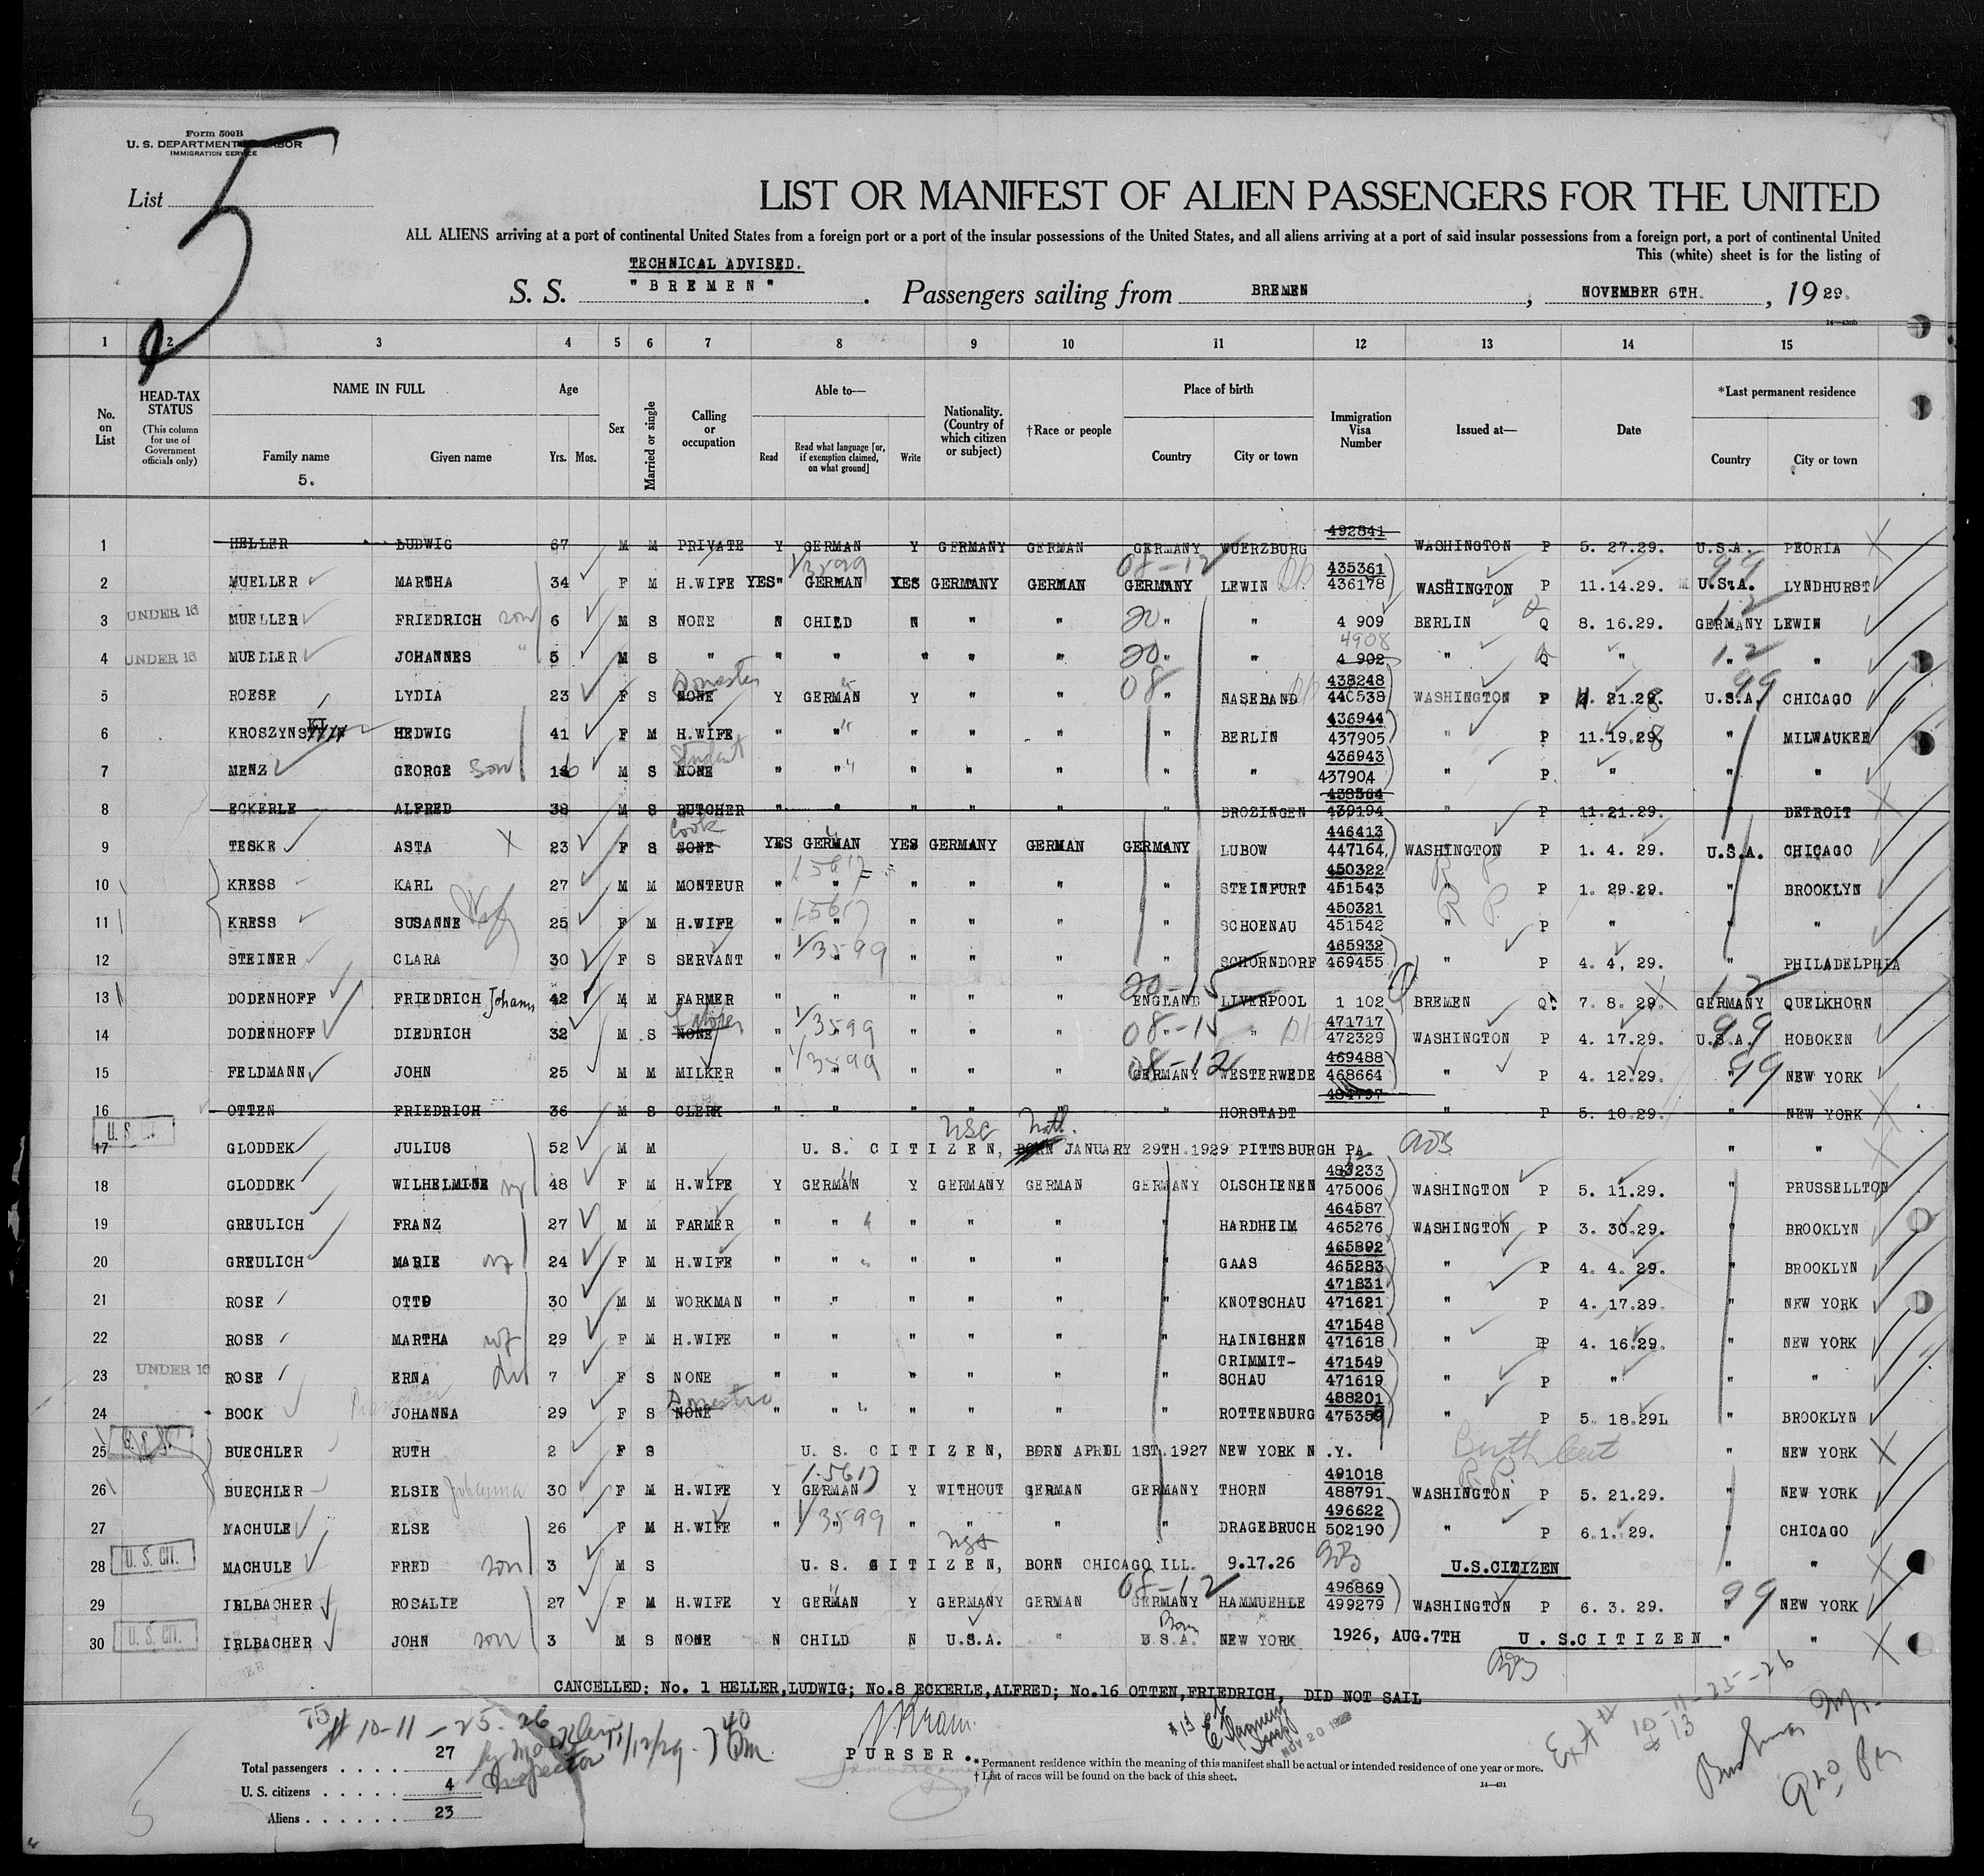 Form 500B
U. S. DEPARTMENT LABOR
IMMIGRATION SERVICE
List
5
LIST OR MANIFEST OF ALIEN PASSENGERS FOR THE UNITED
ALL ALIENS arriving at a port of continental United States from a foreign port or a port of the insular possessions of the United States, and all aliens arriving at a port of said insular possessions from a foreign port, a port of continental United
This (white) sheet is for the listing of
TECHNICAL ADVISED.
S. S. "BREMEN". Passengers sailing from BREMEN, NOVEMBER 6TH., 1929.
14—430b
1 2 3 4 5 6 7 8 9 10 11 12 13 14 15
No. on List HEAD-TAX STATUS (This column for use of Government officials only) NAME IN FULL Family name Given name Age Yrs. Mos. Sex Married or single Calling or occupation Able to— Read Read what language [or, if exemption claimed, on what ground] Write Nationality. (Country of which citizen or subject) †Race or people Place of birth Country City or town Immigration Visa Number Issued at— Date *Last permanent residence Country City or town
5.
1 HELLER LUDWIG 67 M M PRIVATE Y GERMAN Y GERMANY GERMAN GERMANY WUERZBURG 492841 WASHINGTON P 5. 27.29. U.S.A. PEORIA
2 MUELLER MARTHA 34 F M H.WIFE YES" 1/3599 GERMAN YES GERMANY GERMAN 08-12 GERMANY LEWIN 435361 436178 WASHINGTON P 11.14.29. U.S.A. 99 LYNDHURST
3 UNDER 16 MUELLER FRIEDRICH son 6 M S NONE N CHILD N " " 20 " " 4 909 BERLIN Q 8. 16.29. GERMANY 12 LEWIN
4 UNDER 16 MUELLER JOHANNES " 5 M S " " " " " " 20 " " 4908 4 902 " Q " 12 " "
5 ROESE LYDIA 23 F S Domestic NONE Y GERMAN Y " " 08 " NASEBAND 438248 440538 WASHINGTON P 21.29. U.S.A. 99 CHICAGO
6 KROSZYNSKI HEDWIG 41 F M H.WIFE " " " " " " BERLIN 436944 437905 " P 11.19.28 " MILWAUKEE
7 MENZ GEORGE son 16 M S Student NONE " " " " " " " 436943 437904 " P " " "
8 ECKERLE ALFRED 38 M S BUTCHER " " " " " " BROZINGEN 438364 439194 " P 11.21.29. " DETROIT
9 TESKE ASTA X 23 F S Cook NONE YES GERMAN YES GERMANY GERMAN GERMANY LUBOW 446413 447164 WASHINGTON P 1. 4. 29. U.S.A. CHICAGO
10 KRESS KARL 27 M M MONTEUR " 1-5617 " " " " " STEINFURT 450322 451543 R. P. " P 1. 29.29. " BROOKLYN
11 KRESS SUSANNE Wife 25 F M H.WIFE " 1-5617 " " " " " SCHOENAU 450321 451542 R. P. " P " " "
12 STEINER CLARA 30 F S SERVANT " 1/3599 " " " " " SCHORNDORF 465932 469455 " P 4. 4, 29. " PHILADELPHIA
13 DODENHOFF FRIEDRICH Johann 42 M M FARMER " " " " " 20-15 ENGLAND LIVERPOOL 1 102 BREMEN Q 7. 8. 29. GERMANY 12 QUELKHORN
14 DODENHOFF DIEDRICH 32 M S NONE " 1/3599 " " " " 08-15 " " 471717 472329 WASHINGTON P 4. 17.29. U.S.A. 99 HOBOKEN
15 FELDMANN JOHN 25 M M MILKER " 1/3599 " " " " 08-12 GERMANY WESTERWEDE 469488 468664 " P 4. 12.29. " 99 NEW YORK
16 OTTEN FRIEDRICH 36 M S CLERK " " " " " " HORSTADT 484797 " P 5. 10.29. " NEW YORK
U. S. CIT.
17 GLODDEK JULIUS 52 M M U. S. CITIZEN, USC Natl. BORN JANUARY 29TH.1929 PITTSBURGH PA. " "
18 GLODDEK WILHELMINE wf 48 F M H.WIFE Y GERMAN Y GERMANY GERMAN GERMANY OLSCHIENEN 483233 475006 WASHINGTON P 5. 11.29. " PRUSSELLTON
19 GREULICH FRANZ 27 M M FARMER " " " " " " HARDHEIM 464587 465276 WASHINGTON P 3. 30.29. " BROOKLYN
20 GREULICH MARIE wf 24 F M H.WIFE " " " " " " GAAS 465892 465283 " P 4. 4. 29. " BROOKLYN
21 ROSE OTTO 30 M M WORKMAN " " " " " " KNOTSCHAU 471831 471621 " P 4. 17.29. " NEW YORK
22 ROSE MARTHA wf 29 F M H.WIFE " " " " " " HAINICHEN 471548 471618 " P 4. 16.29. " NEW YORK
23 UNDER 16 ROSE ERNA 7 F S NONE " " " " " " CRIMMIT-SCHAU 471549 471619 " P " " "
24 BOCK JOHANNA 29 F S Domestic NONE " " " " " " ROTTENBURG 488201 475359 " P 5. 18.29L " BROOKLYN
25 BUECHLER RUTH 2 F S U. S. CITIZEN, BORN APRIL 1ST.1927 NEW YORK N.Y. Birth Cert " NEW YORK
26 BUECHLER ELSIE Johanna 30 F M H.WIFE Y 1-5617 GERMAN Y WITHOUT GERMAN GERMANY THORN 491018 488791 R.P. WASHINGTON P 5. 21.29. " NEW YORK
27 MACHULE ELSE 26 F M H.WIFE " 1/3599 " " " " " DRAGEBRUCH 496622 502190 " P 6.1. 29. " CHICAGO
28 U. S. CIT. MACHULE FRED son 3 M S U. S. CITIZEN, BORN CHICAGO ILL. 9.17.26 U.S.CITIZEN " "
29 IRLBACHER ROSALIE 27 F M H.WIFE Y GERMAN Y GERMANY GERMAN 08-12 GERMANY HAMMUEHLE 496869 499279 WASHINGTON P 6. 3. 29. " 99 NEW YORK
30 U. S. CIT. IRLBACHER JOHN son 3 M S NONE N CHILD N U.S.A. " Born U.S.A. NEW YORK 1926, AUG.7TH U. S.CITIZEN " "
CANCELLED: No. 1 HELLER,LUDWIG; No.8 ECKERLE,ALFRED; No.16 OTTEN,FRIEDRICH, DID NOT SAIL
# 10-11-25-26
Inspector 11/12/29
Total passengers . . . . 27
U. S. citizens . . . . . 4
Aliens . . . . . . 23
PURSER.
#13
NOV 20 1929
Ext # 10-11-25-26
& 13
* Permanent residence within the meaning of this manifest shall be actual or intended residence of one year or more.
† List of races will be found on the back of this sheet.
14—431
5